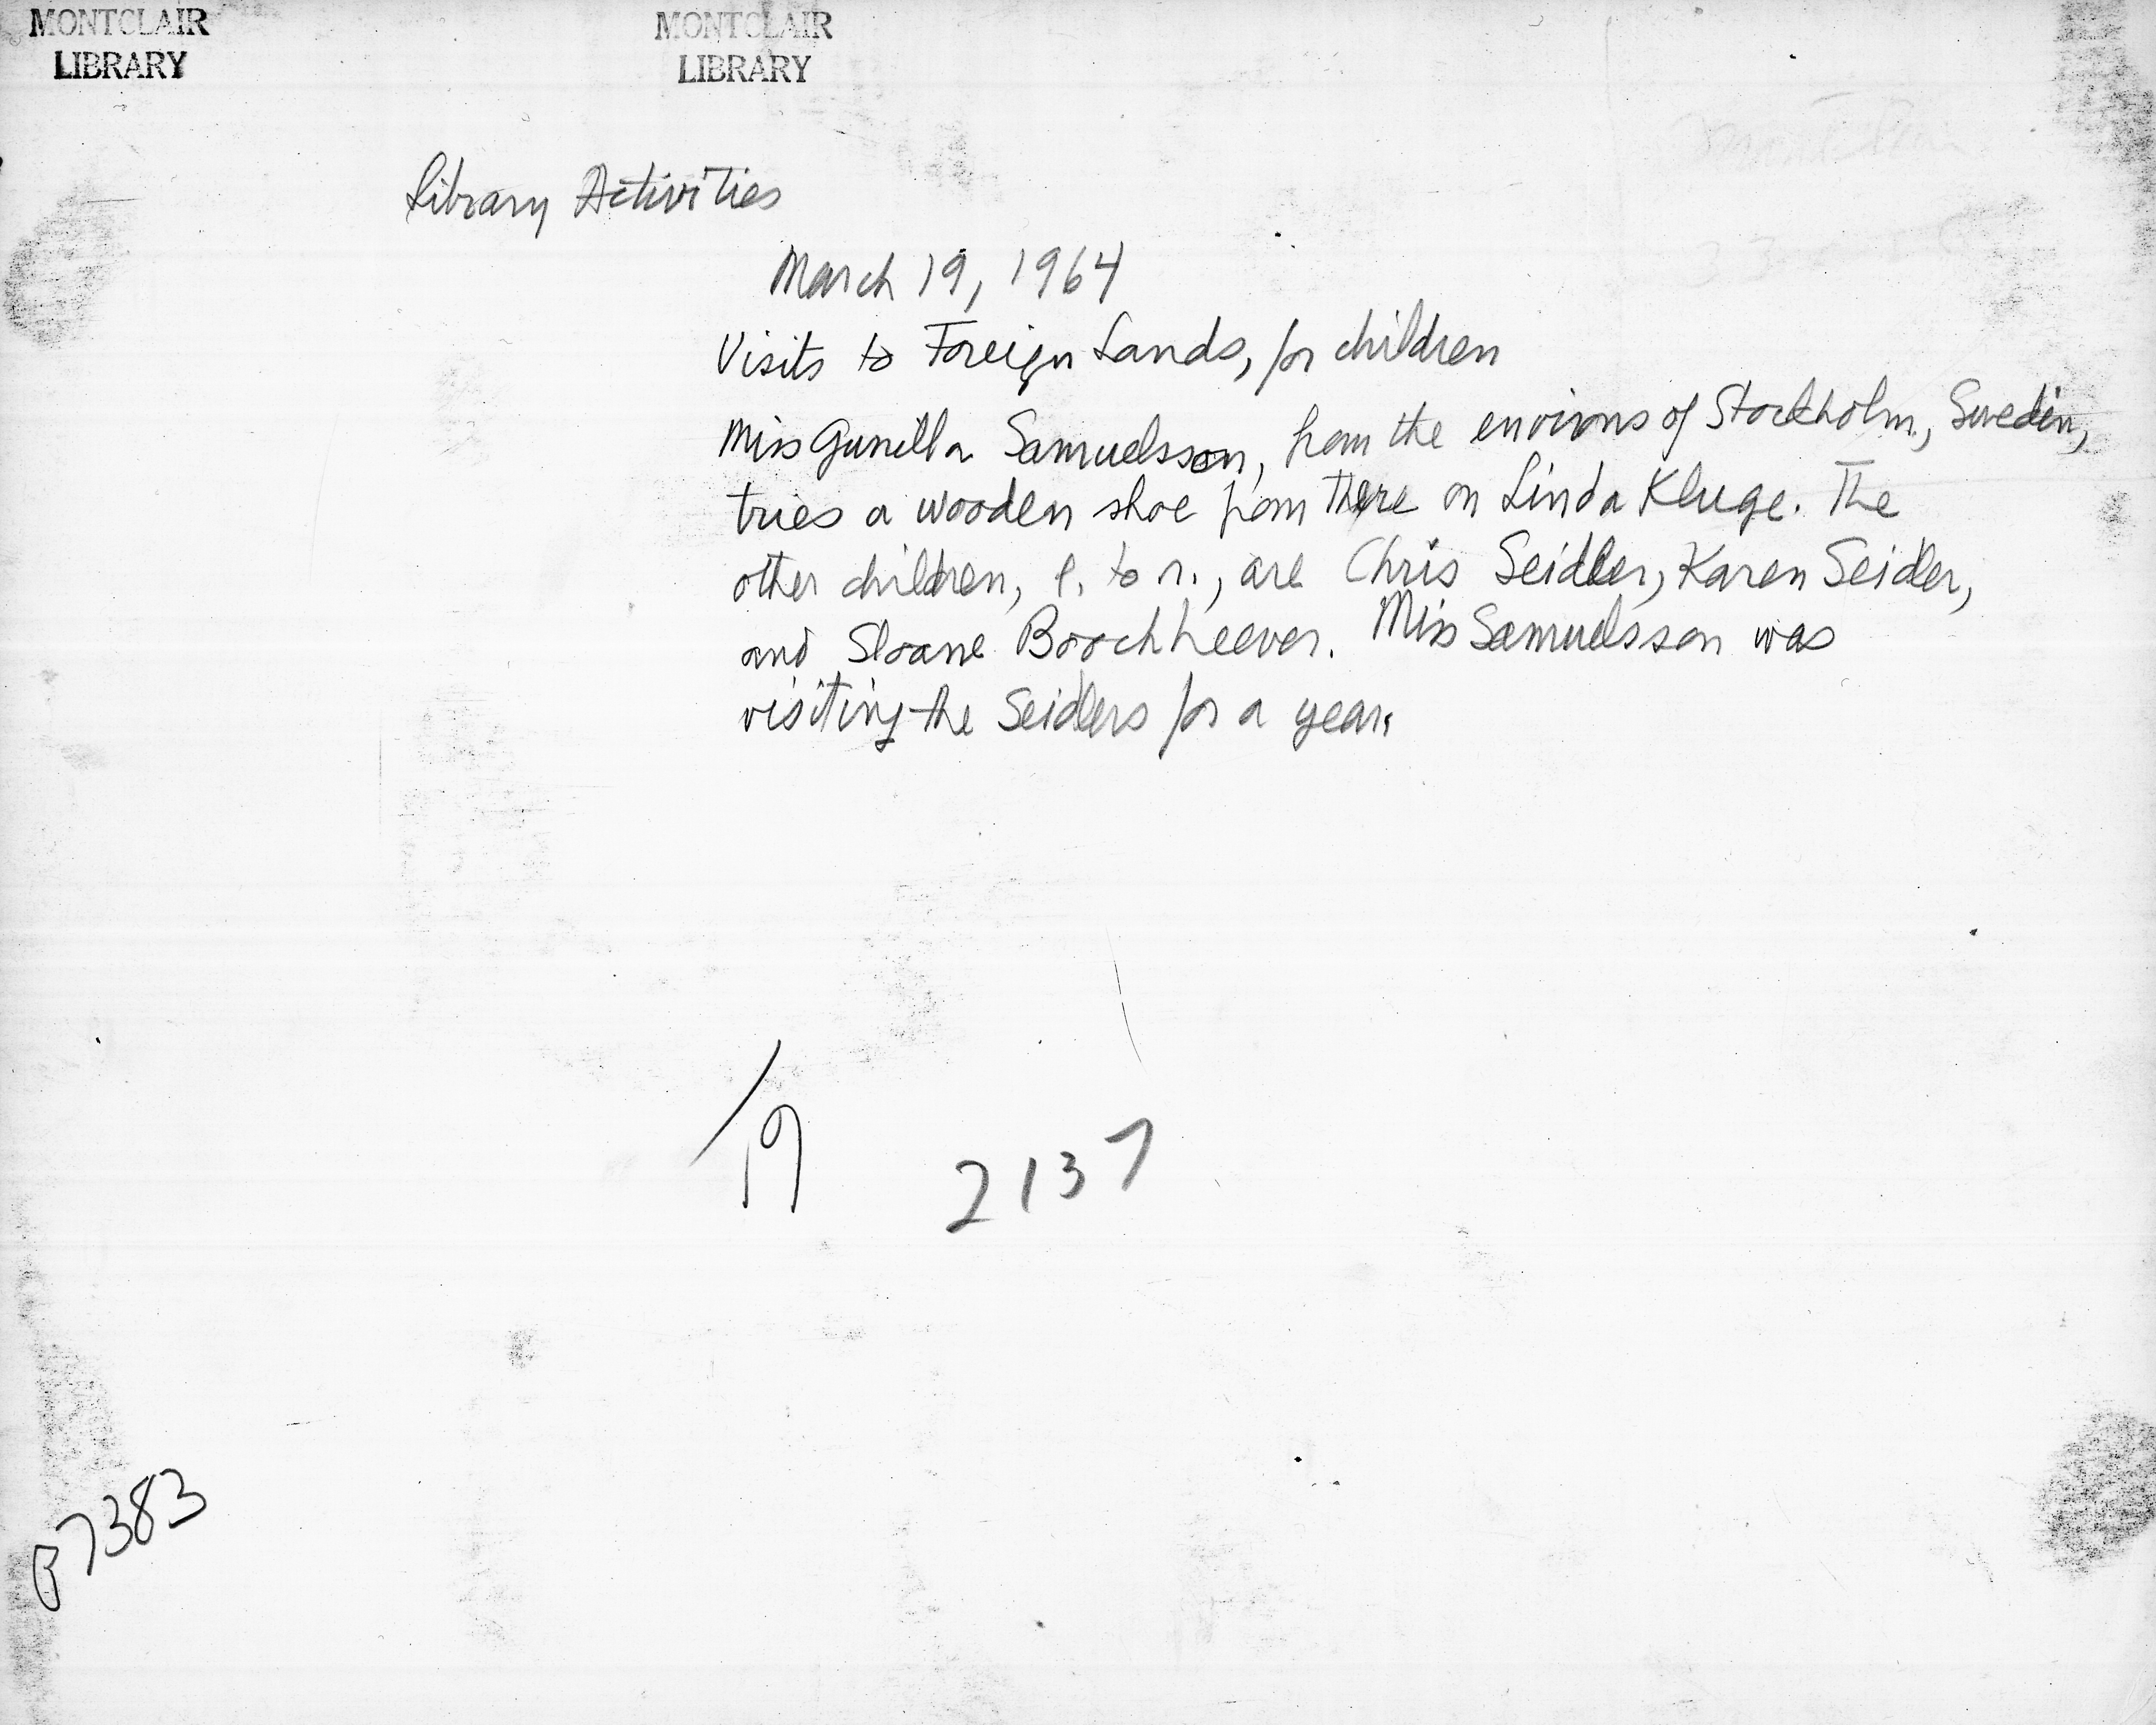 MONTCLAIR
LIBRARY
MONTCLAIR
LIBRARY
Library Activities
March 19, 1964
Visits to Foreign Lands, for children
Miss Gunilla Samuelsson, from the environs of Stockholm, Sweden,
tries a wooden shoe from there on Linda Kluge. The
other children, l. to r., are Chris Seidler, Karen Seidler,
and Sloane Boochheever. Miss Samuelsson was
visiting the Seidlers for a year.
/19 2137
B7383